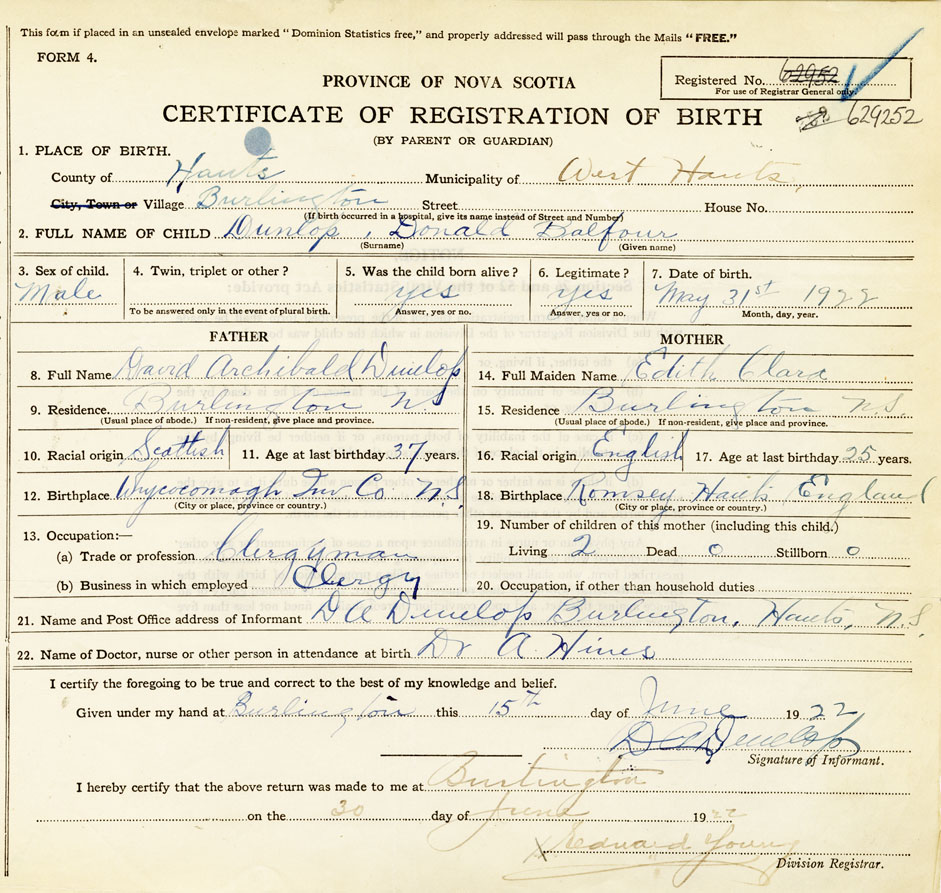 This form if placed in an unsealed envelope marked "Dominion Statistics free," and properly addressed will pass through the Mails "FREE."
FORM 4.
PROVINCE OF NOVA SCOTIA
Registered No. 62952
For use of Registrar General only.
CERTIFICATE OF REGISTRATION OF BIRTH
629252
(BY PARENT OR GUARDIAN)
1. PLACE OF BIRTH.
County of Hants Municipality of West Hants,
City, Town or Village Burlington Street House No.
(If birth occurred in a hospital, give its name instead of Street and Number)
2. FULL NAME OF CHILD Dunlop, Donald Balfour
(Surname) (Given name)
3. Sex of child. 4. Twin, triplet or other? 5. Was the child born alive? 6. Legitimate? 7. Date of birth.
Male yes yes May 31st 1922
To be answered only in the event of plural birth. Answer, yes or no. Answer, yes or no. Month, day, year.
FATHER MOTHER
8. Full Name David Archibald Dunlop 14. Full Maiden Name Edith Clara
9. Residence. Burlington N S 15. Residence Burlington N.S.
(Usual place of abode.) If non-resident, give place and province. (Usual place of abode.) If non-resident, give place and province.
10. Racial origin Scottish 11. Age at last birthday 37 years. 16. Racial origin English 17. Age at last birthday 25 years.
12. Birthplace Whycocomagh Inv Co. N.S. 18. Birthplace Romsey Hants England
(City or place, province or country.) (City or place, province or country.)
13. Occupation:— 19. Number of children of this mother (including this child.)
(a) Trade or profession Clergyman Living 2 Dead 0 Stillborn 0
(b) Business in which employed Clergy 20. Occupation, if other than household duties
21. Name and Post Office address of Informant D A Dunlop Burlington, Hants, N.S.
22. Name of Doctor, nurse or other person in attendance at birth Dr A. Hines
I certify the foregoing to be true and correct to the best of my knowledge and belief.
Given under my hand at Burlington this 15th day of June 1922
D A Dunlop
Signature of Informant.
I hereby certify that the above return was made to me at Burlington
on the 30 day of June 1922
X Edward Young
Division Registrar.